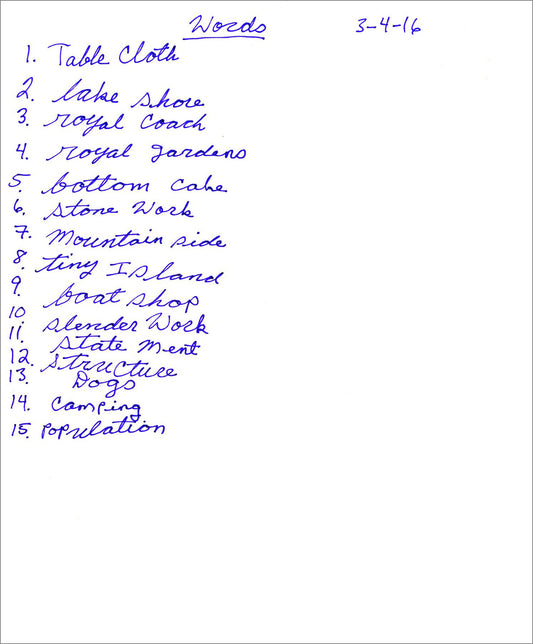 Words 3-4-16
1. Table Cloth
2. lake shore
3. royal Coach
4. royal gardens
5. bottom cake
6. stone Work
7. Mountain side
8. tiny Island
9. boat shop
10 slender Work
11. State Ment
12. structure
13. Dogs
14. Camping
15. Population